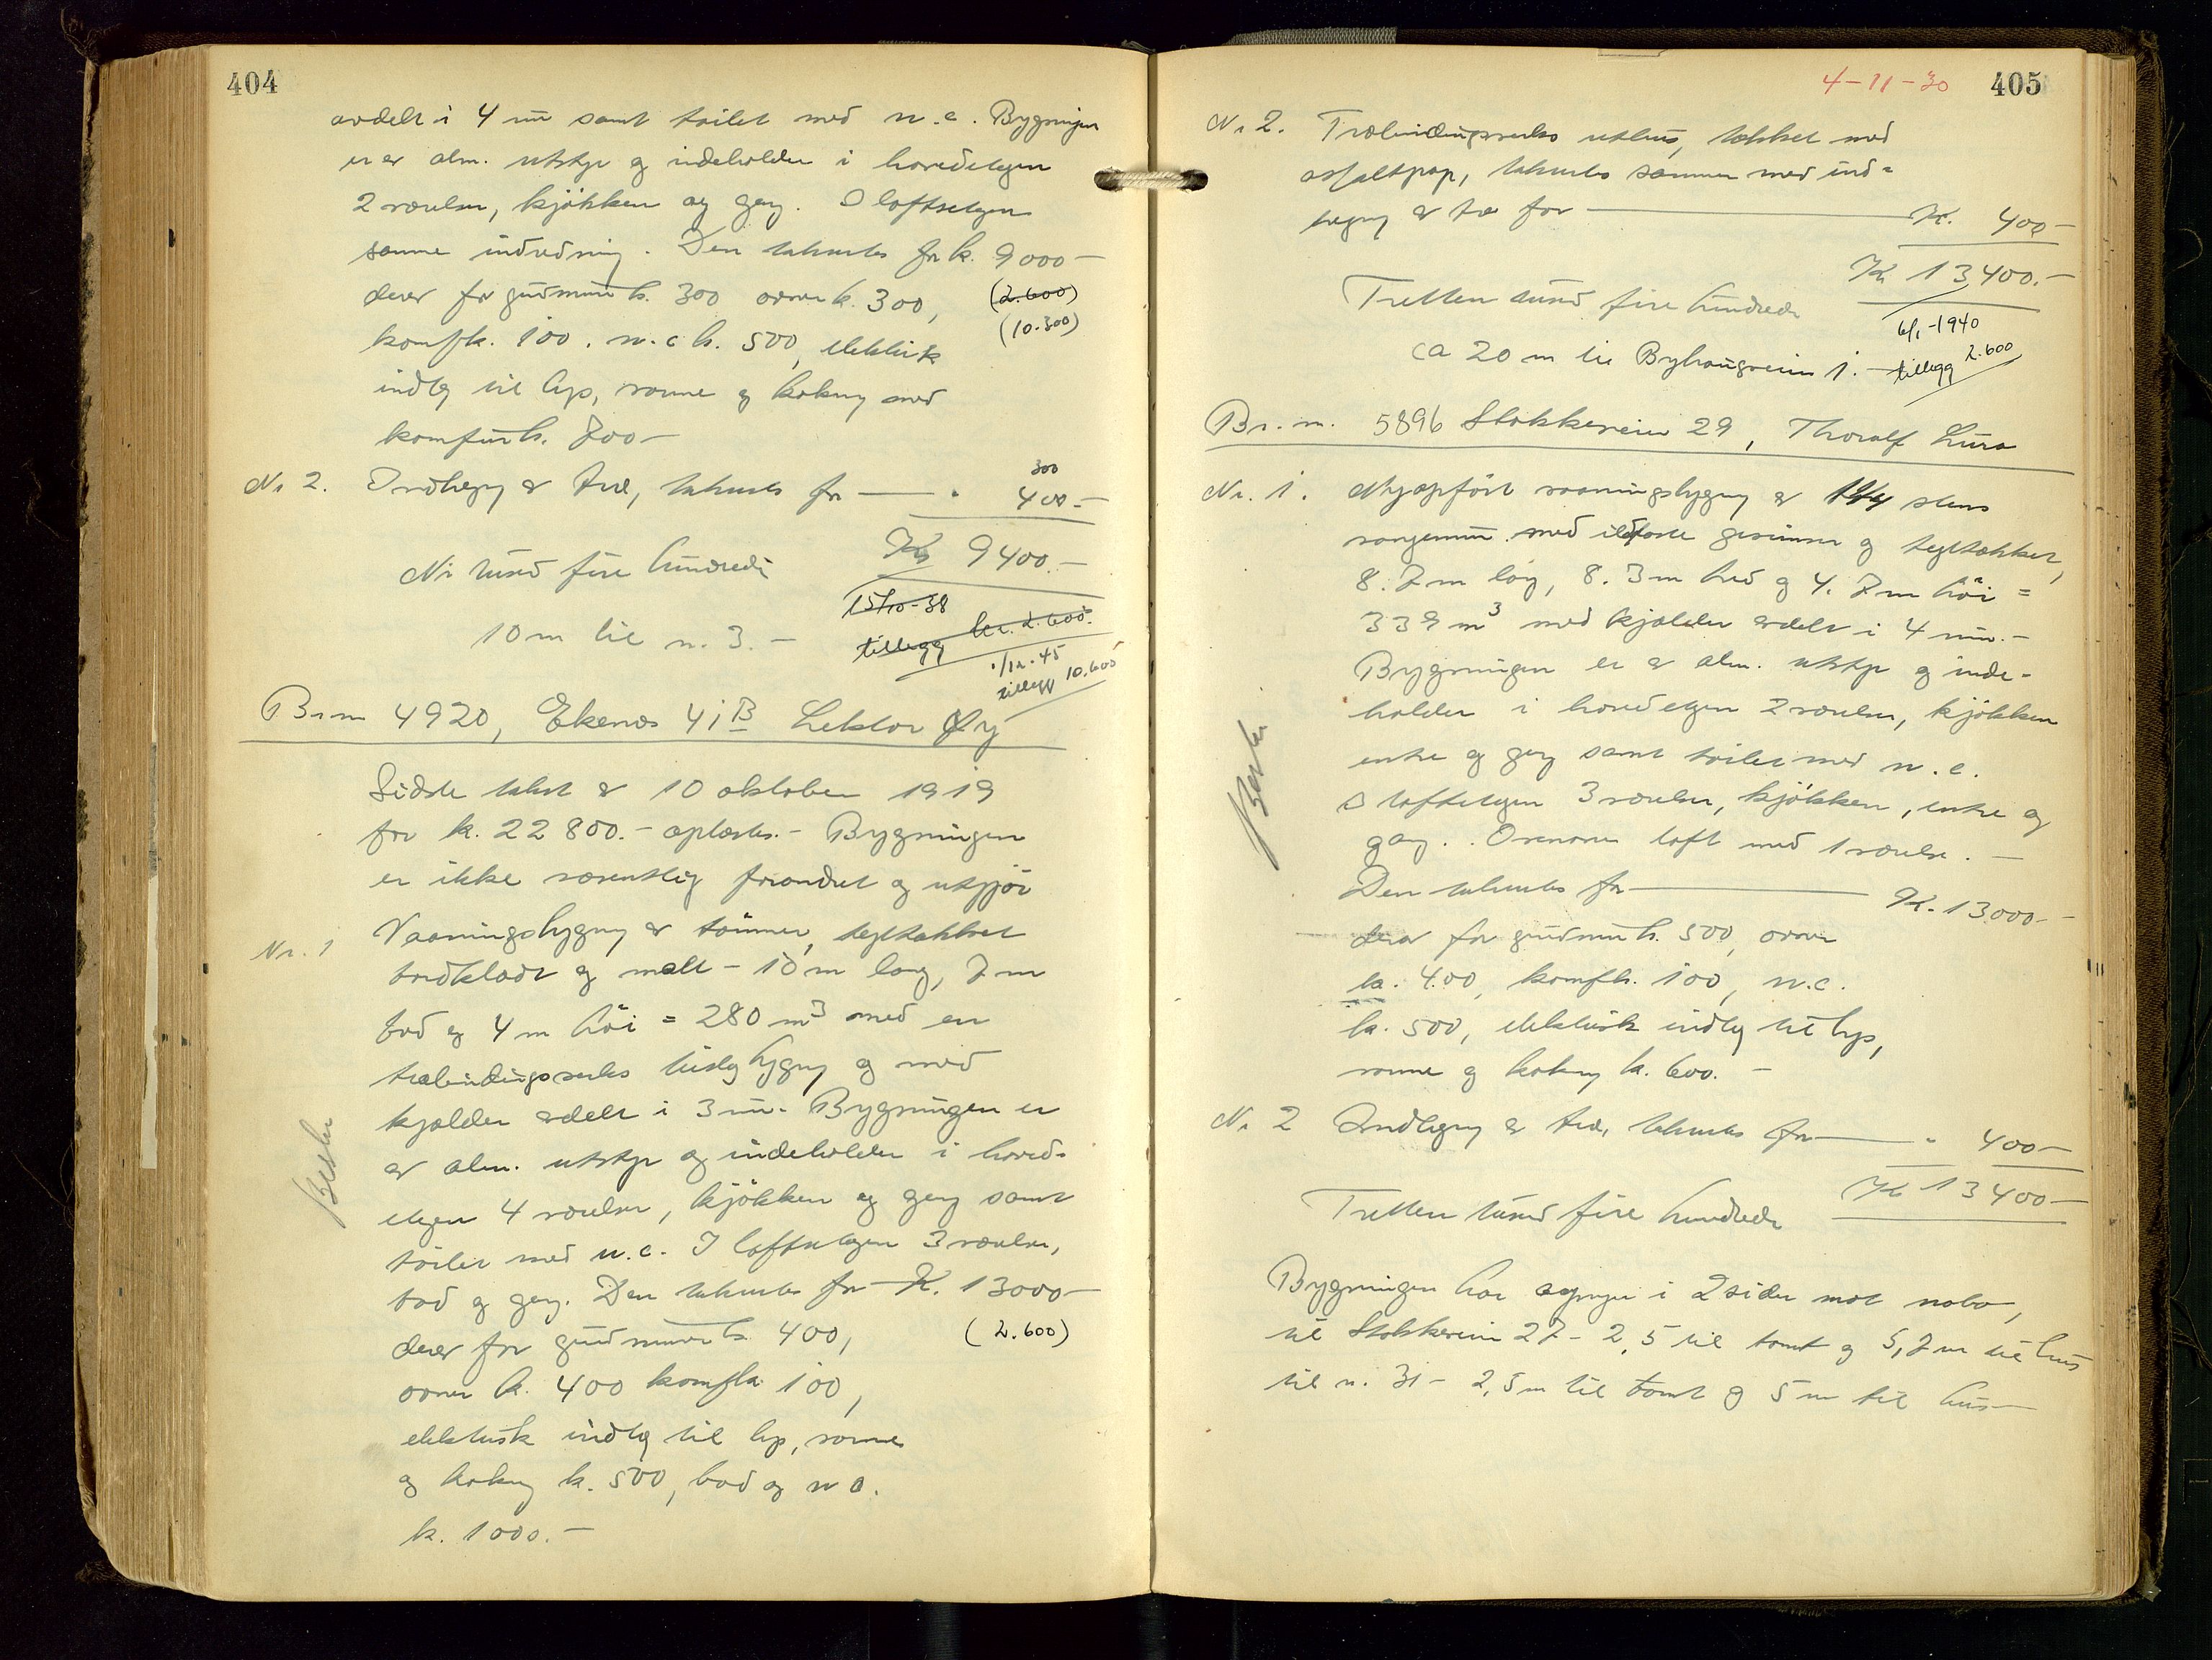 404
avdelt i 4 rum samt toilet med w.c. Bygningen
er av alm. utstyr og indeholder i hovedetagen
2 værelser, kjøkken og gang. I loftsetagen
samme indredning. Den takseres for k. 9000 —
derav for grundmur k. 300 ovner k. 300, (2.600)
komf k. 100, w.c k. 500, elektrisk (10.300)
indlæg til lys, varme og kokning med
komfur k. 700 —
300
Nr 2. Indhegning av træ, takseres for — " 400 —
Kr 9400. —
Ni tusend fire hundrede
15/10-38
tillegg kr. 2.600.
10 m til n. 3. —
1/12-45
tillegg 10.600
Br.n 4920, Ekenæs 41 B Lektor Øy
Sidste takst av 10 oktober 1919
for k. 22800. — oplæstes. — Bygningen
er ikke væsentlig forandret og utgjør
Nr. 1 Vaaningsbygning av tømmer, tegltækket
bordklædt og malt — 10 m lang, 7 m
bred og 4 m høi = 280 m3 med en
træbindingsverks tilbygning og med
kjælder avdelt i 3 rum. Bygningen er
av alm. utstyr og indeholder i hoved-
etagen 4 værelser, kjøkken og gang samt
toilet med w.c. I loftsetagen 3 værelser,
bod og gang. Den takseres for K. 13000 —
derav for grundmur k. 400, (2.600)
ovner k. 400 komf k. 100,
elektrisk indlæg til lys, varme
og kokning k. 500, bad og w c.
k. 1000. —
4-11-30 405
Nr 2. Træbindingsverks uthus, tækket med
asfaltpap, takseres sammen med ind-
hegning av træ for — K. 400 —
Kr 13,400. —
Tretten tusend fire hundrede
6/1-1940
ca 20 m til Byhaugveien 1. — tillegg 2.600
Br. n. 5896 Stokkeveien 29, Thoralf Lura
Nr. 1. Nyopført vaaningsbygning av 1 1/4 stens
mangemur med ildfaste gesimser og tegltækket,
8.7 m lang, 8.3 m bred og 4.7 m høi =
339 m3 med kjælder avdelt i 4 rum. —
Bygningen er av alm. utstyr og inde-
holder i hovedetagen 2 værelser, kjøkken
entre og gang samt toilet med w.c.
I loftsetagen 3 værelser, kjøkken, entre og
gang. Ovenover loft med 1 værelse. —
Den takseres for — K. 13000 —
derav for grundmur k. 500, ovner
k. 400, komf k. 100, w.c.
k. 500, elektrisk indlæg til lys,
varme og kokning k. 600. —
Nr 2 Indhegning av træ, takseres for — " 400 —
Kr 13400 —
Tretten tusend fire hundrede
Bygningen har aapninger i 2 sider mot nabo,
til Stokkeveien 27 — 2,5 til tomt og 5,7 m til hus
til n. 31 — 2,5 m til tomt og 5 m til hus —